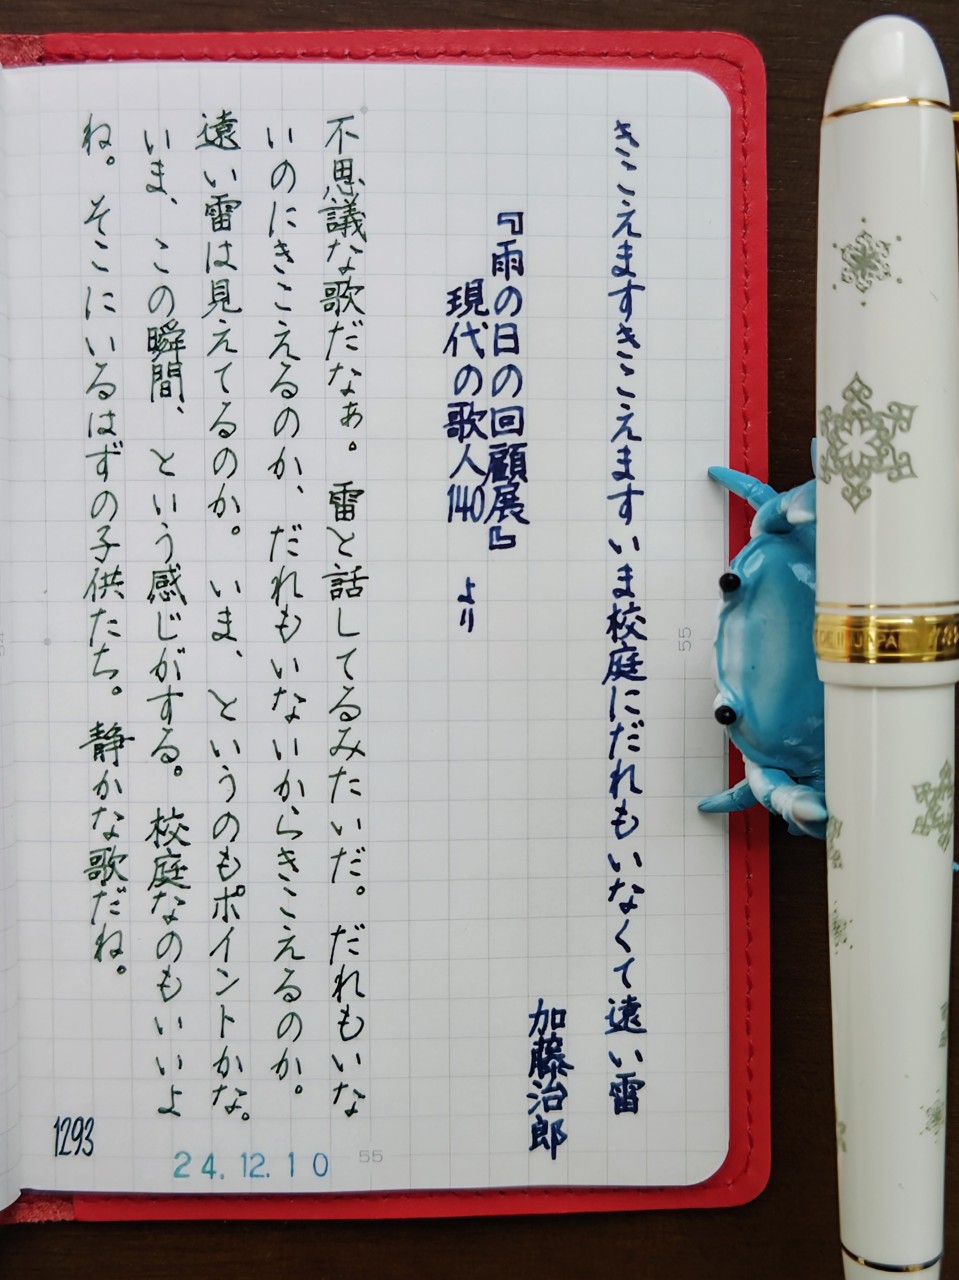 きこえますきこえますいま校庭にだれもいなくて遠い雷
加藤治郎
『雨の日の回顧展』
現代の歌人140 より
不思議な歌だなぁ。雷と話してるみたいだ。だれもいな
いのにきこえるのか、だれもいないからきこえるのか。
遠い雷は見えてるのか。いま、というのもポイントかな。
いま、この瞬間、という感じがする。校庭なのもいいよ
ね。そこにいるはずの子供たち。静かな歌だね。
1293
24.12.10
55
55
JAPA